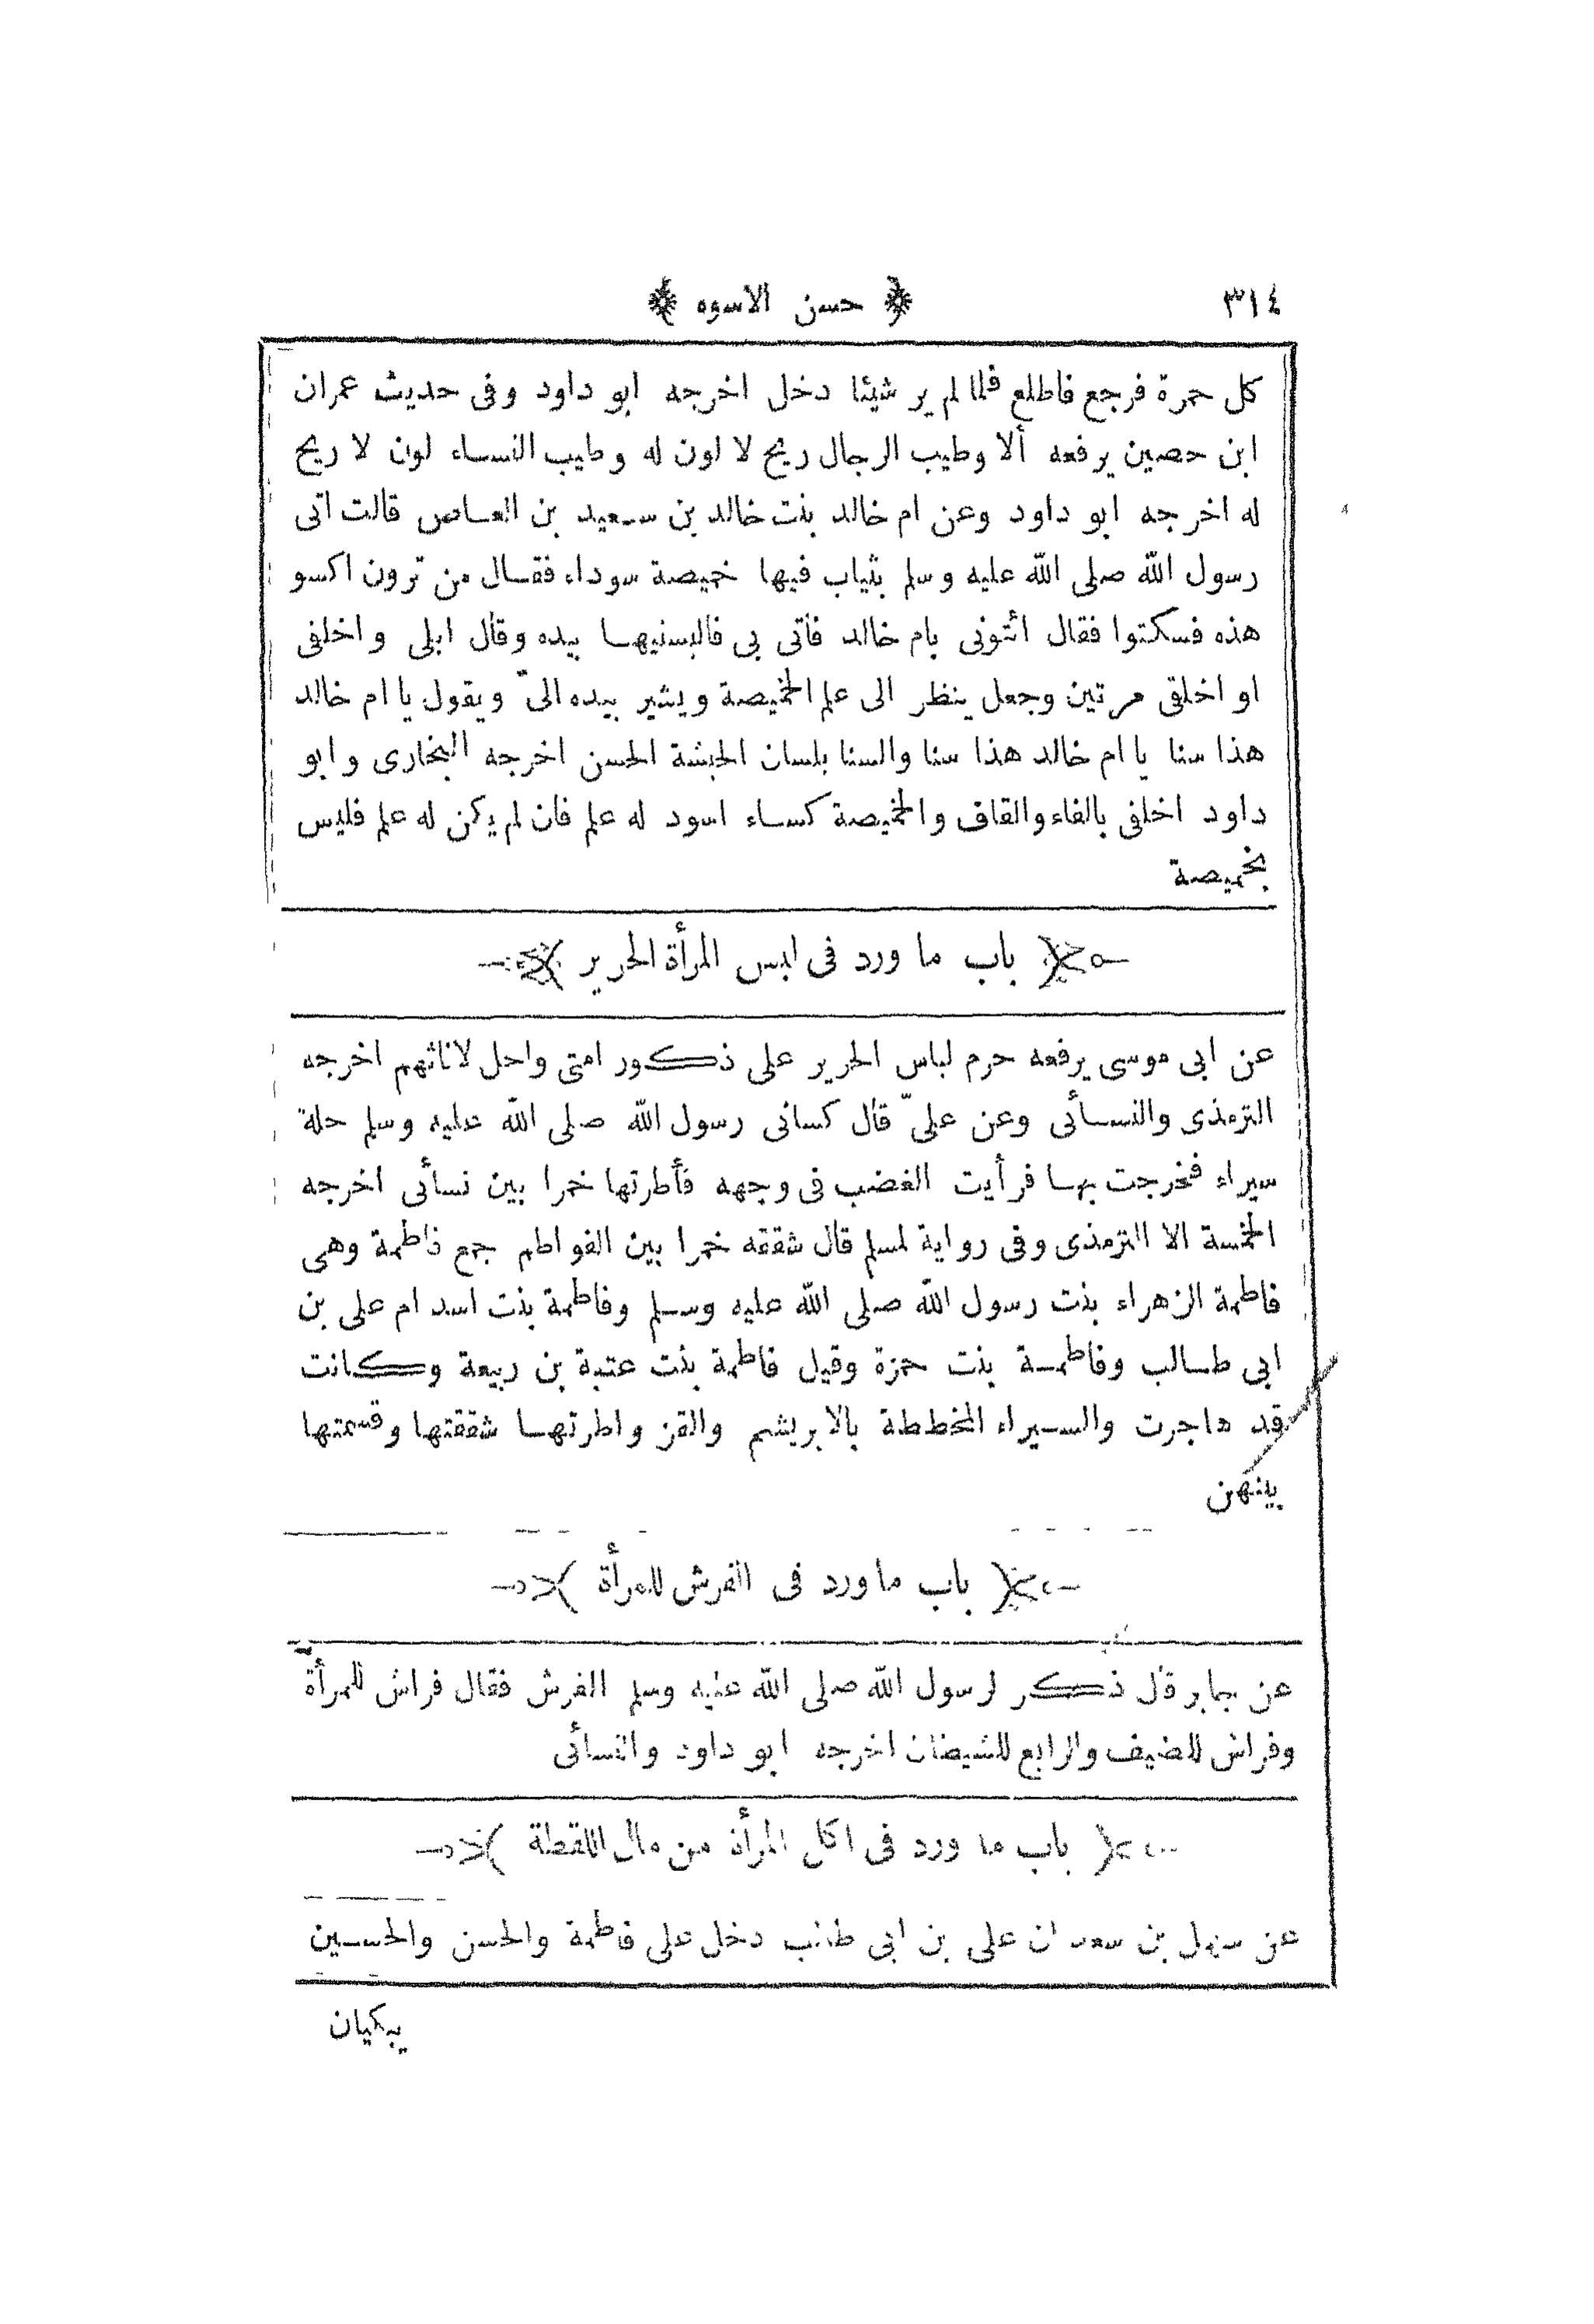 ٣١٤ ﴿ حسن الاسوه ﴾
كل حمرة فرجع فاطلع فلما لم ير شيئا دخل اخرجه ابو داود وفى حديث عمران
ابن حصين يرفعه ألا وطيب الرجال ريح لا لون له وطيب النساء لون لا ريح
له اخرجه ابو داود وعن ام خالد بنت خالد بن سعيد بن العاص قالت اتى
رسول الله صلى الله عليه وسلم بثياب فيها خميصة سوداء فقال من ترون اكسو
هذه فسكتوا فقال ائتونى بام خالد فأتى بى فالبسنيها بيده وقال ابلى واخلفى
او اخلقى مرتين وجعل ينظر الى علم الخميصة ويشير بيده الىّ ويقول يا ام خالد
هذا سنا يا ام خالد هذا سنا والسنا بلسان الحبشة الحسن اخرجه البخارى وابو
داود اخلفى بالفاء والقاف والخميصة كساء اسود له علم فان لم يكن له علم فليس
بخميصة
﴿ باب ما ورد فى لبس المرأة الحرير ﴾
عن ابى موسى يرفعه حرم لباس الحرير على ذكور امتى واحل لاناثهم اخرجه
الترمذى والنسائى وعن علىّ قال كسانى رسول الله صلى الله عليه وسلم حلة
سيراء فخرجت بها فرأيت الغضب فى وجهه فأطرتها خمرا بين نسائى اخرجه
الخمسة الا الترمذى وفى رواية لمسلم قال شققه خمرا بين الفواطم جمع فاطمة وهى
فاطمة الزهراء بنت رسول الله صلى الله عليه وسلم وفاطمة بنت اسد ام على بن
ابى طالب وفاطمة بنت حمزة وقيل فاطمة بنت عتبة بن ربيعة وكانت
قد هاجرت والسيراء المخططة بالابريشم والقز واطرتها شققتها وقسمتها
بينهن
﴿ باب ما ورد فى الفرش للمرأة ﴾
عن جابر قال ذكر لرسول الله صلى الله عليه وسلم الفرش فقال فراش للمرأة
وفراش للضيف والرابع للشيطان اخرجه ابو داود والنسائى
﴿ باب ما ورد فى اكل المرأة من مال اللقطة ﴾
عن سهل بن سعد ان على بن ابى طالب دخل على فاطمة والحسن والحسين
يبكيان